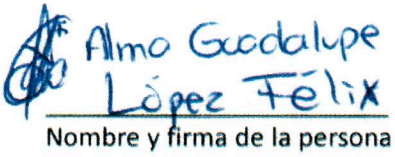 Alma Guadalupe
López Félix
Nombre y firma de la persona